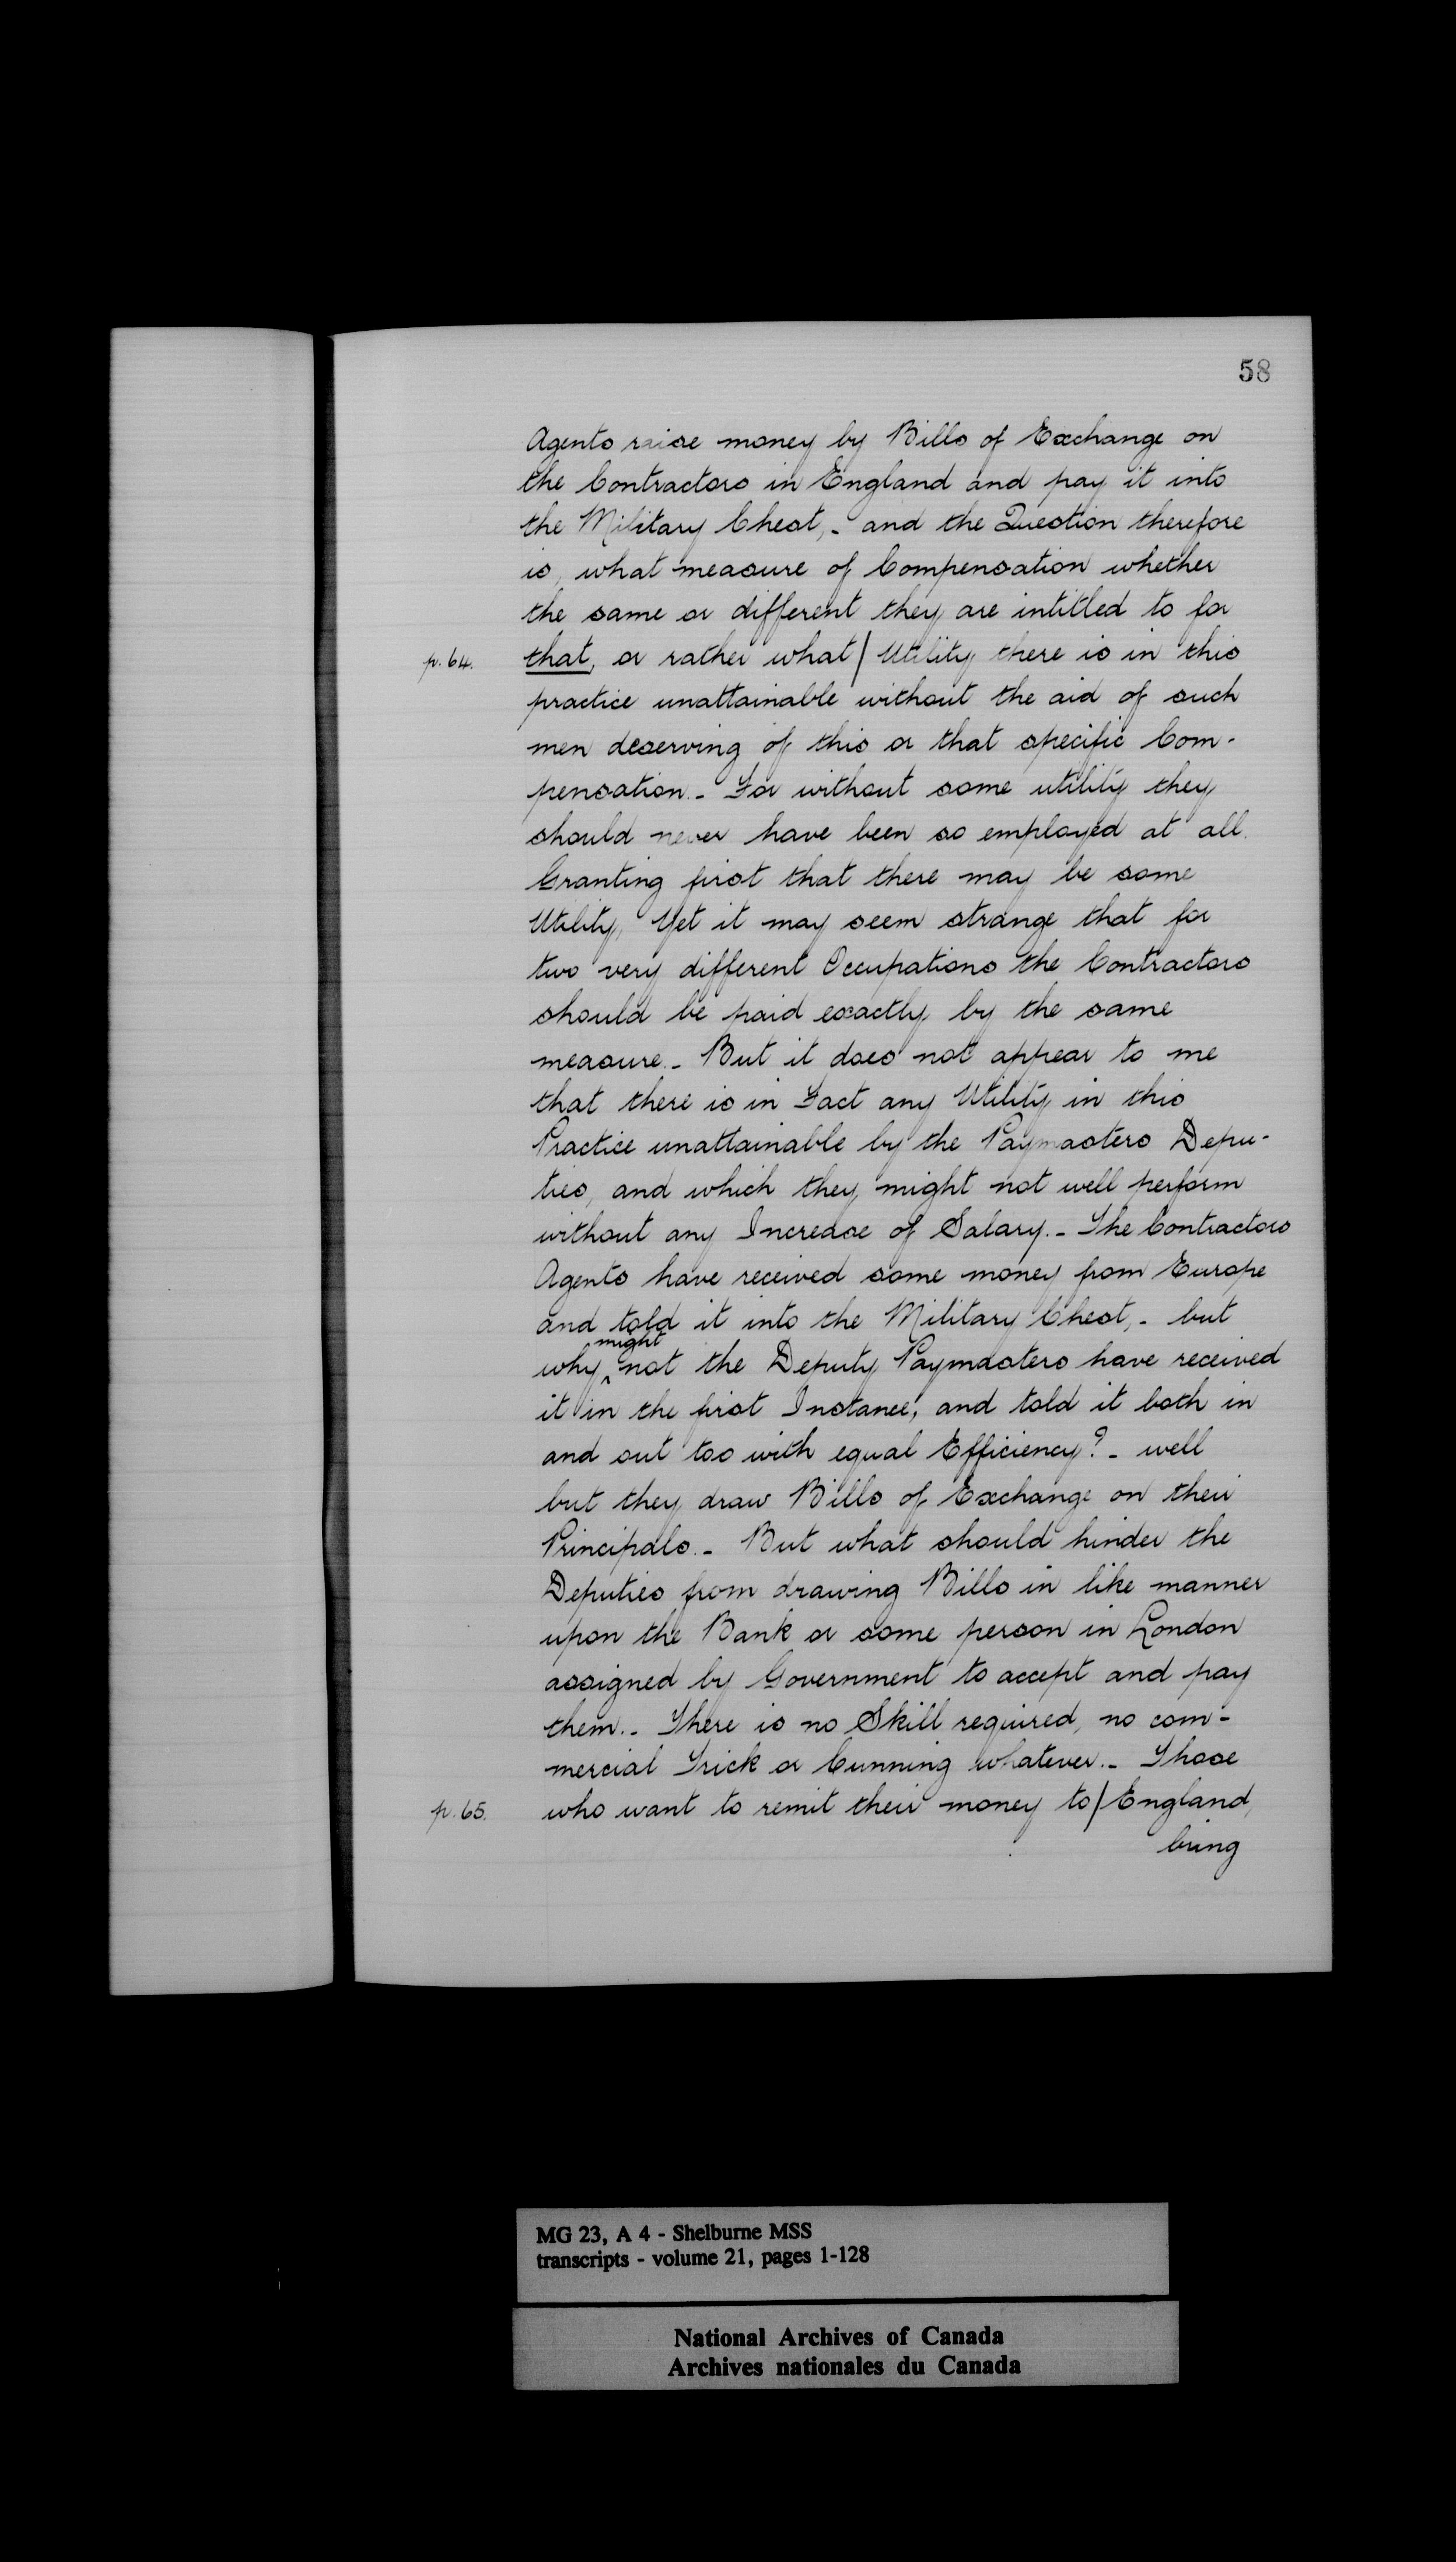 58
Agents raise money by Bills of Exchange on
the Contractors in England and pay it into
the Military Chest,- and the Question therefore
is, what measure of Compensation whether
the same or different they are intitled to for
p. 64. that, or rather what / Utility there is in this
practice unattainable without the aid of such
men deserving of this or that specific Com-
pensation.- For without some utility they
should never have been so employed at all.
Granting first that there may be some
Utility, Yet it may seem strange that for
two very different Occupations the Contractors
should be paid exactly by the same
measure.- But it does not appear to me
that there is in Fact any Utility in this
Practice unattainable by the Paymasters Depu-
ties, and which they might not well perform
without any Increase of Salary.- The Contractors
Agents have received some money from Europe
and told it into the Military Chest,- but
why ^might not the Deputy Paymasters have received
it in the first Instance, and told it both in
and out too with equal Efficiency?- well
but they draw Bills of Exchange on their
Principals.- But what should hinder the
Deputies from drawing Bills in like manner
upon the Bank or some person in London
assigned by Government to accept and pay
them.- There is no Skill required, no com-
mercial Trick or Cunning whatever.- Those
p. 65. who want to remit their money to / England,
bring
MG 23, A 4 - Shelburne MSS
transcripts - volume 21, pages 1-128
National Archives of Canada
Archives nationales du Canada